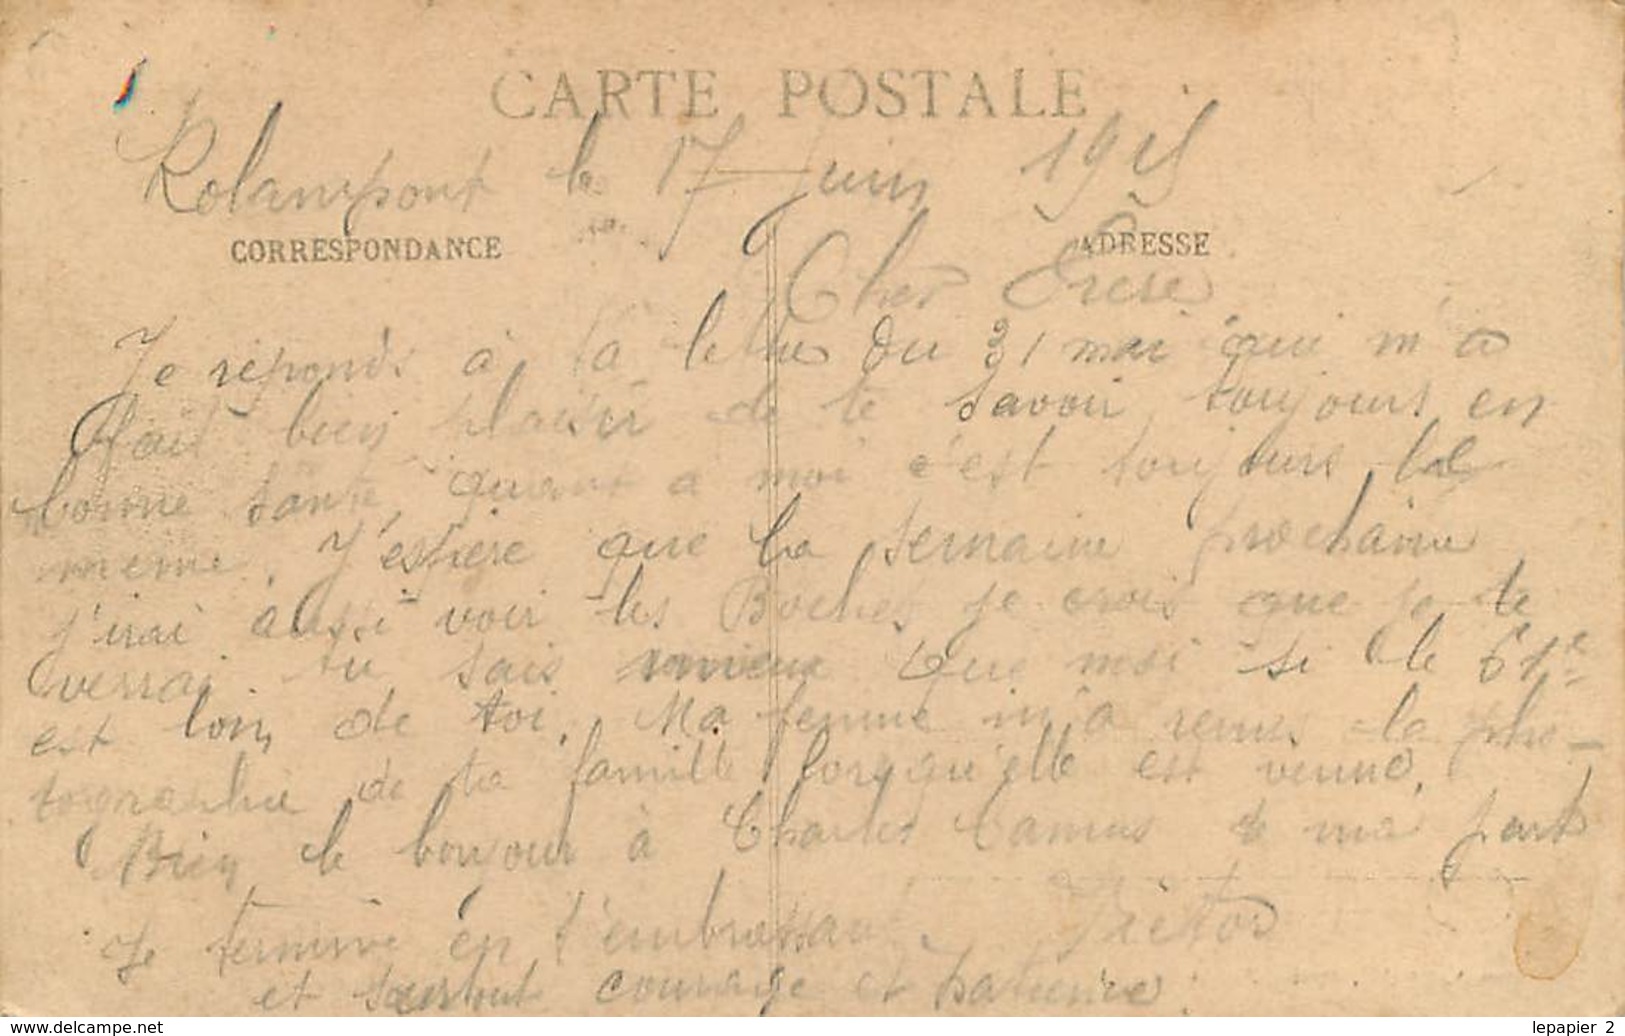 CARTE POSTALE
Rolampont le 17 Juin 1915
CORRESPONDANCE
ADRESSE
Cher Frère
Je réponds à ta lettre du 31 mai qui m'a
fait bien plaisir de te savoir toujours en
bonne santé, quant a moi c'est toujours le
meme. J'espère que la semaine prochaine
j'irai aussi voir les Boches je crois que je te
verrai tu sais mieux que moi si le 61e
est loin de toi. Ma femme m'a remis la pho-
tographie de ta famille lorsqu'elle est venue.
Bien le bonjour à Charles Camus de ma part
Je termine en t'embrassant. Victor
et surtout courage et patience.
www.delcampe.net
lepapier_2